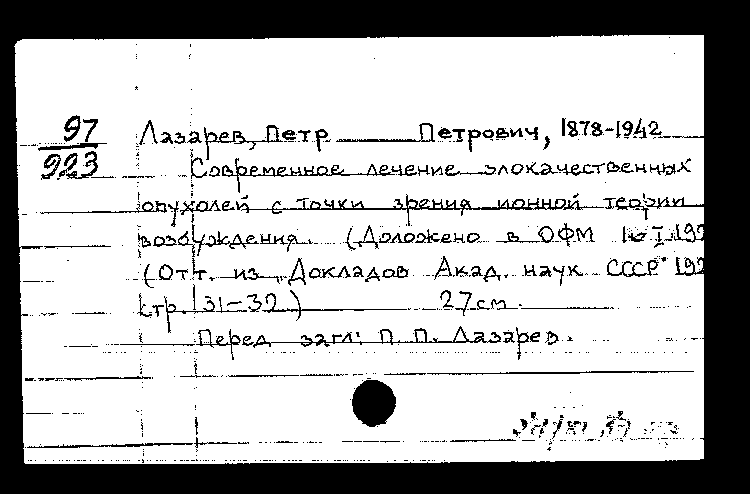 97
923
Лазарев, Петр Петрович, 1878-1942
Современное лечение злокачественных
опухолей с точки зрения ионной теории
возбуждения. (Доложено в ОФМ
(Отт. из „Докладов Акад. наук СССР"
стр. 31-32.) 27 см.
Перед загл: П. П. Лазарев.